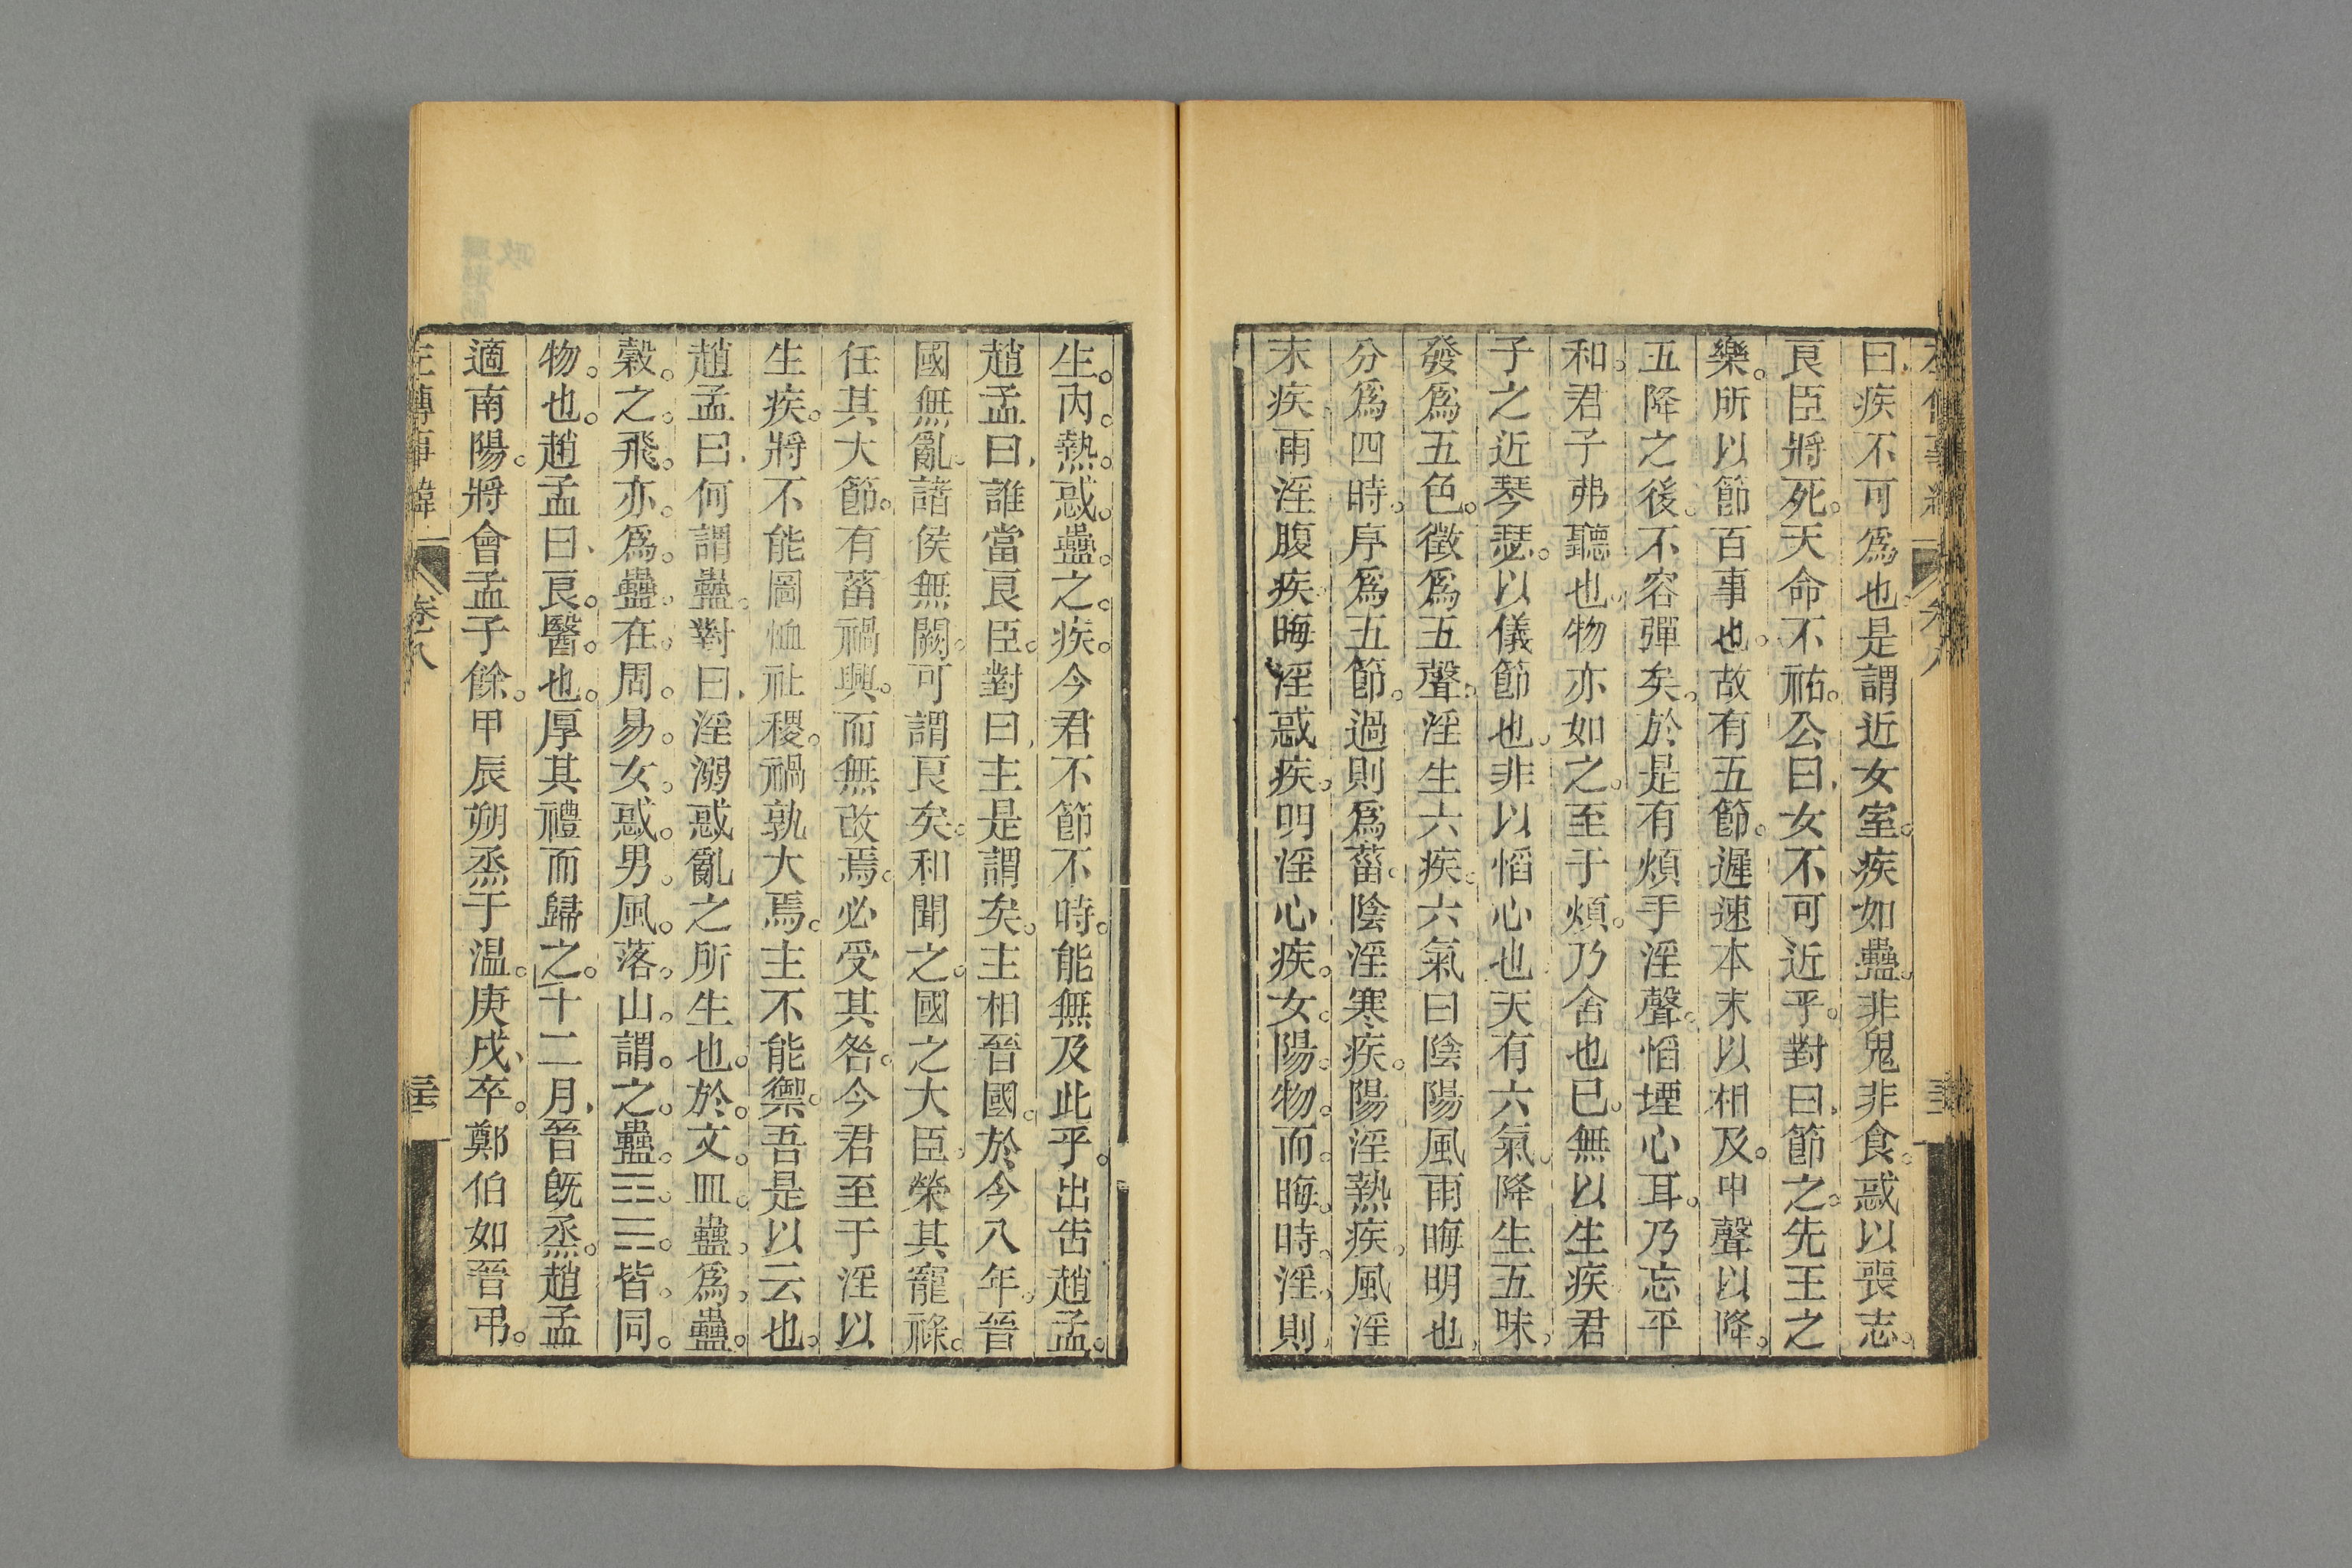 曰疾不可爲也是謂近女室。疾如蠱。非鬼非食。惑以喪志。
良臣將死。天命不祐。公曰女不可近乎。對曰節之。先王之
樂。所以節百事也。故有五節。遲速本末以相及。中聲以降。
五降之後。不容彈矣。於是有煩手淫聲。慆堙心耳。乃忘平
和。君子弗聽也。物亦如之。至于煩。乃舍也已。無以生疾。君
子之近琴瑟。以儀節也。非以慆心也。天有六氣。降生五味。
發爲五色。徵爲五聲。淫生六疾。六氣曰陰陽風雨晦明也。
分爲四時。序爲五節。過則爲菑。陰淫寒疾。陽淫熱疾。風淫
末疾。雨淫腹疾。晦淫惑疾。明淫心疾。女。陽。物。而。晦。時。淫。則
生。內。熱。惑。蠱。之。疾。今君不節不時。能無及此乎。出告趙孟。
趙孟曰誰當良臣。對曰主是謂矣。主相晉國。於今八年。晉
國無亂。諸侯無闕。可謂良矣。和聞之。國之大臣。榮其寵祿。
任其大節。有菑禍興。而無改焉。必受其咎。今君至于淫以
生疾。將不能圖恤社稷。禍孰大焉。主不能禦。吾是以云也。
趙孟曰何謂蠱。對曰淫溺惑亂之所生也。於。文。皿。蠱。爲。蠱。
穀。之。飛。亦。爲。蠱。在。周。易。女。惑。男。風。落。山。謂。之。蠱。☶。☴。皆。同。
物。也。趙孟曰良。醫。也。厚其禮而歸之。十二月晉旣烝。趙孟
適南陽。將會孟子餘。甲辰朔烝于温。庚戌卒。鄭伯如晉弔。
左傳事緯
卷八